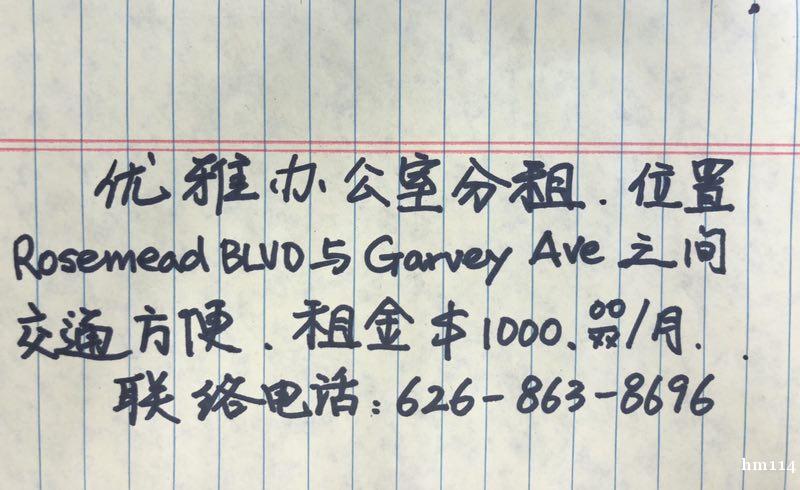 优雅办公室分租. 位置
Rosemead BLVD与Garvey Ave之间
交通方便. 租金$1000.00/月.
联络电话: 626-863-8696
hm114